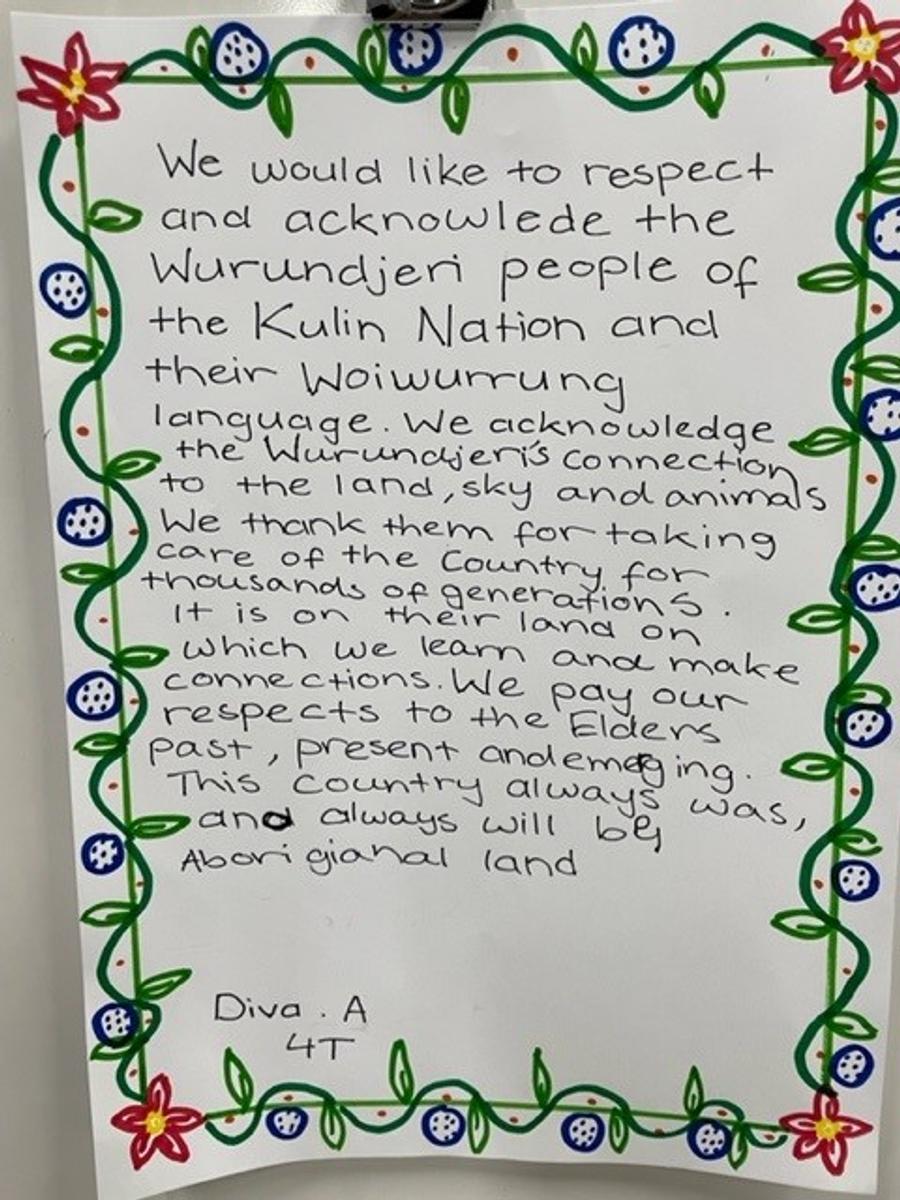 We would like to respect
and acknowlede the
Wurundjeri people of
the Kulin Nation and
their Woiwurrung
language. We acknowledge
the Wurundjeri's connection
to the land, sky and animals
We thank them for taking
care of the Country for
thousands of generations.
It is on their land on
which we learn and make
connections. We pay our
respects to the Elders
past, present and emerging.
This country always was,
and always will be,
Aborigianal land
Diva. A
4T